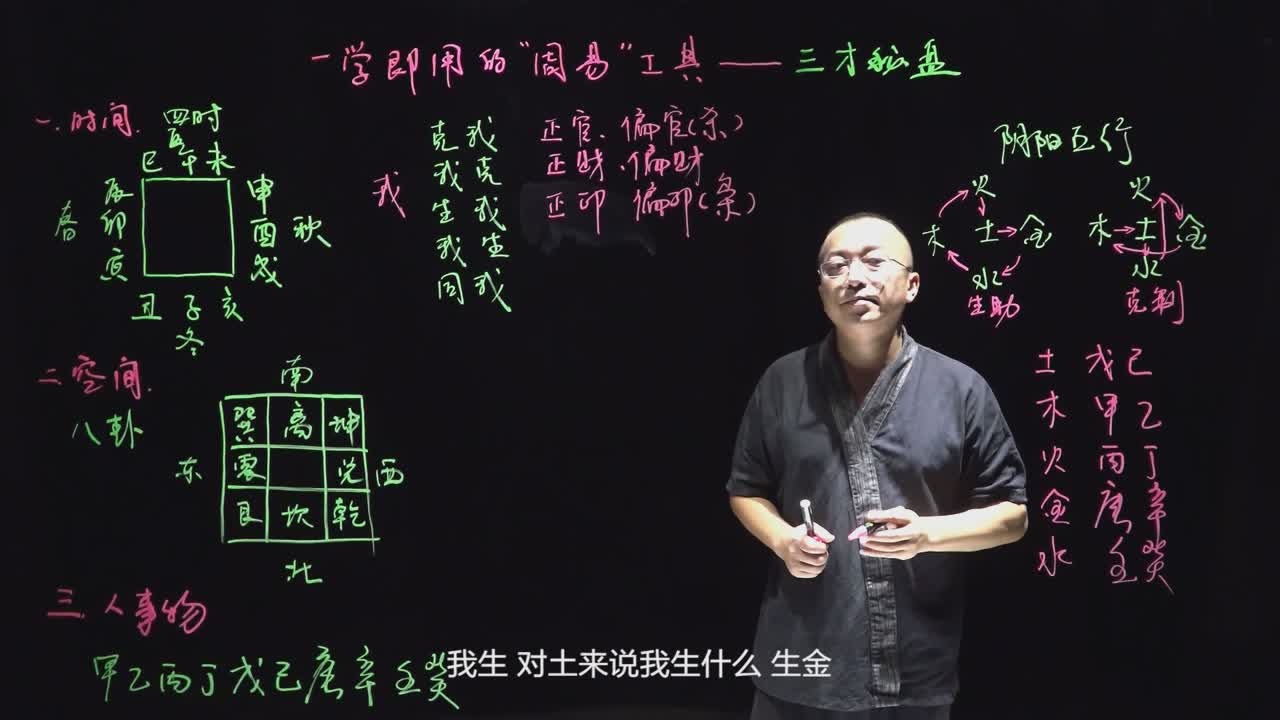 一学即用的“周易”工具——三才秘盘
一.时间.
四时
夏
巳午未
辰
卯
寅
春
申
酉
戌
秋
丑子亥
冬
我
克我 正官、偏官(杀)
我克 正财、偏财
生我 正印 偏印(枭)
我生
同我
阴阳五行
火
木 土 金
水
生助
火
木 土 金
水
克制
土 戊己
木 甲乙
火 丙丁
金 庚辛
水 壬癸
二.空间.
八卦
南
巽 离 坤
东 震 兑 西
艮 坎 乾
北
三.人事物
甲乙丙丁戊己庚辛壬癸
我生 对土来说我生什么 生金